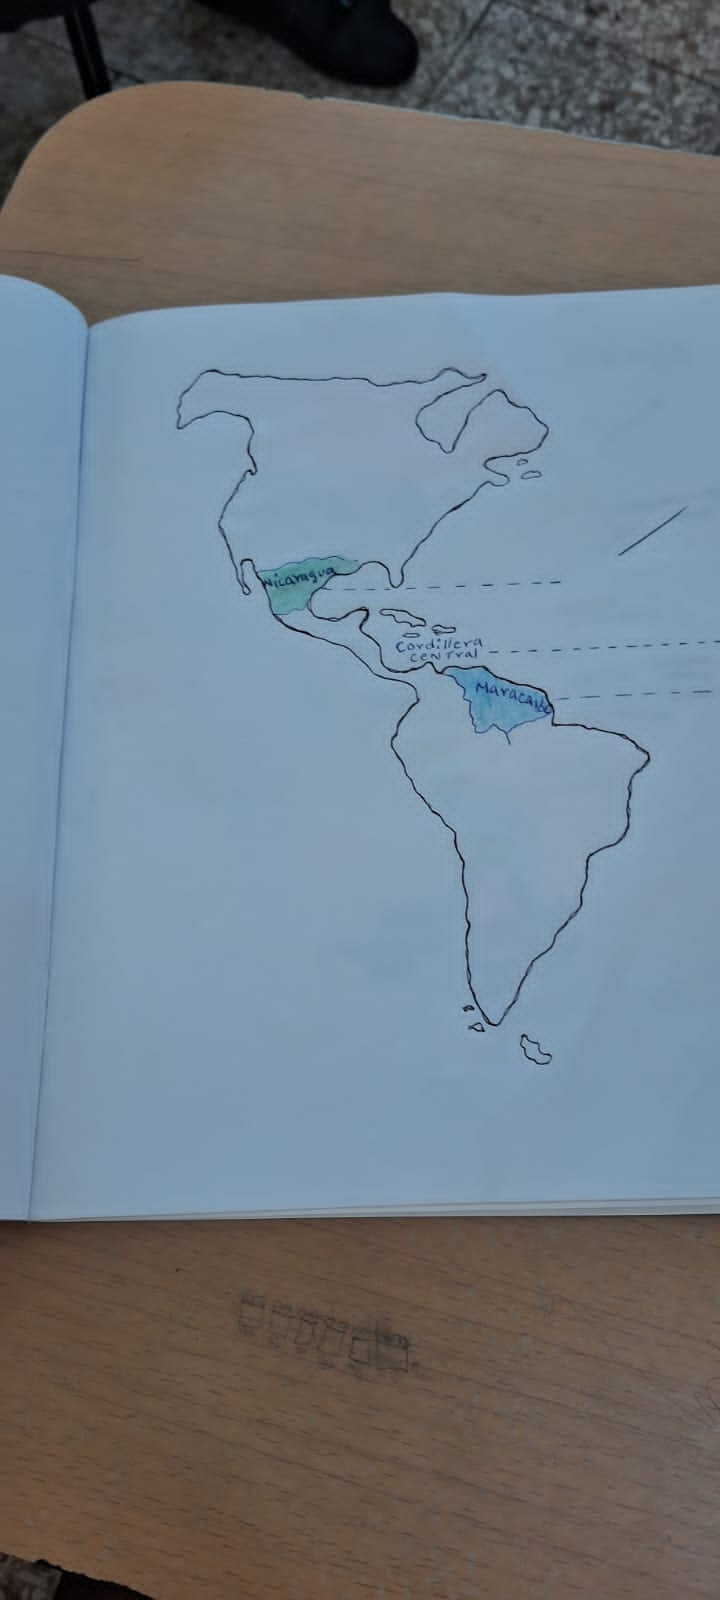 Nicaragua
Cordillera
CENTral
Maracaibo